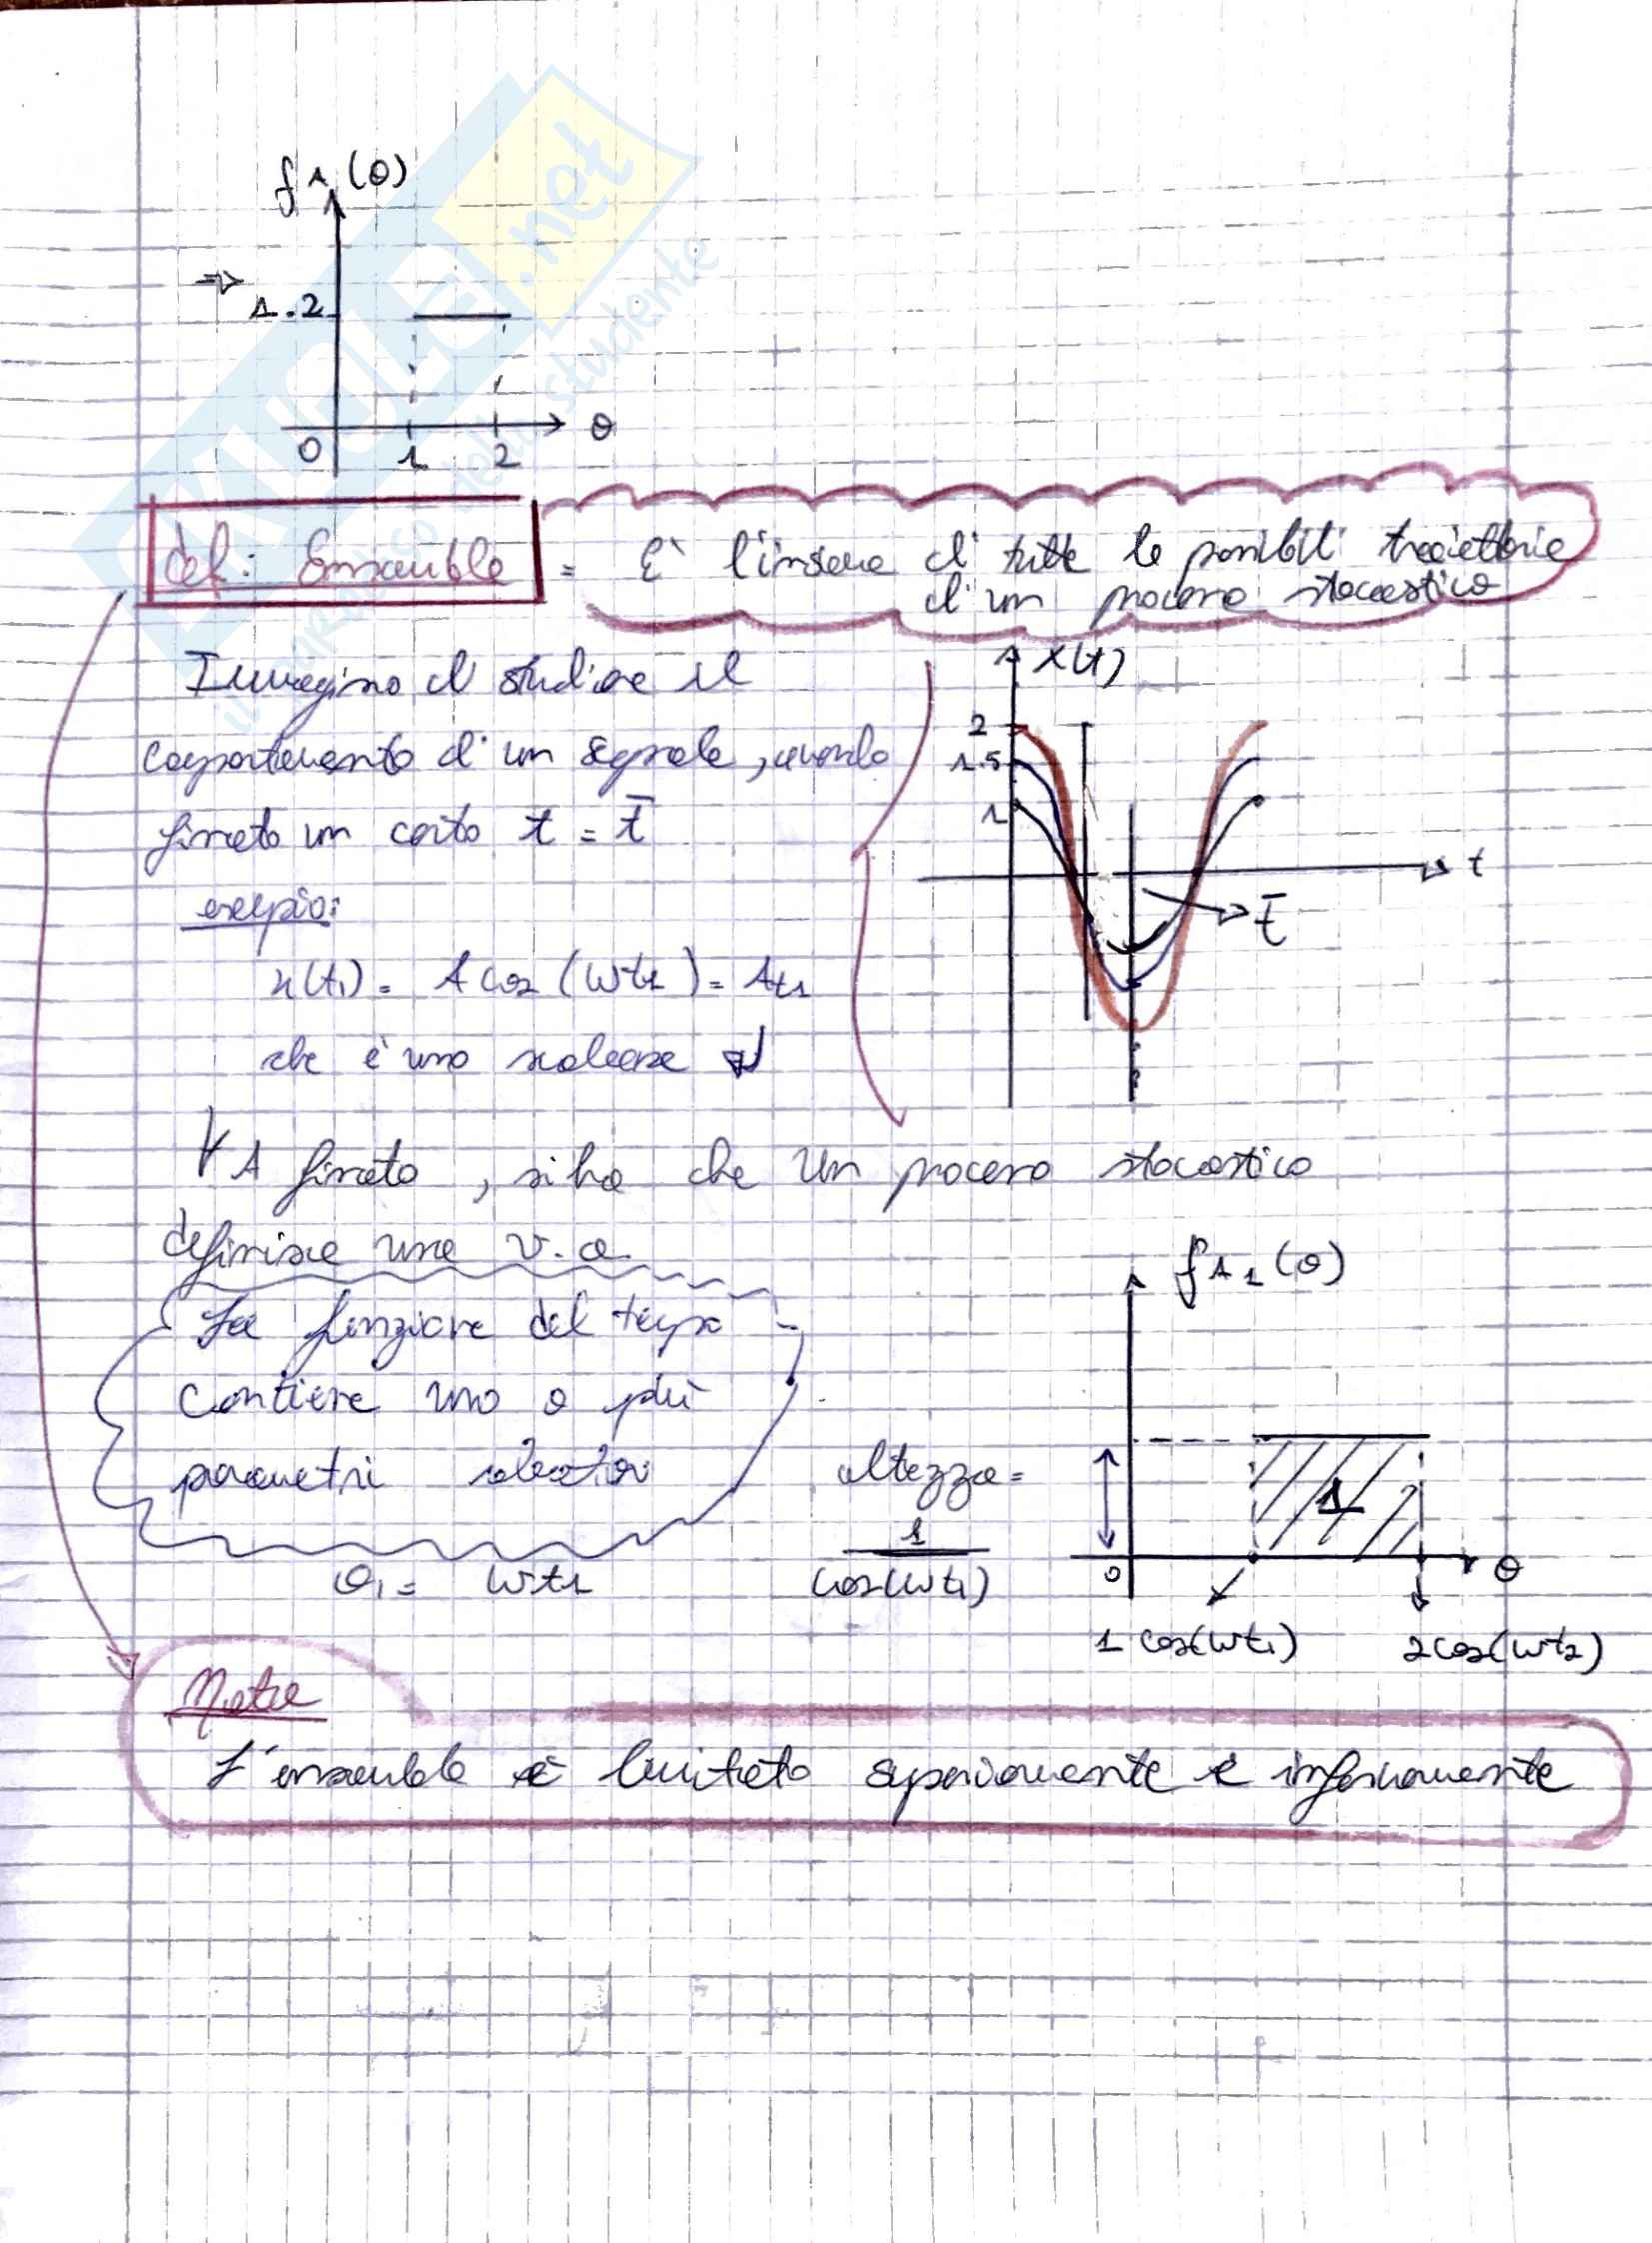 fA(θ)
⇒
1.2
0 1 2 θ
def: Ensemble = È l'insieme di tutte le possibili traiettorie
di un processo stocastico
Immagino di studiare il
comportamento di un segnale, avendo
fissato un certo t = t̄
esempio:
x(t₁) = A cos(ωt₁) = At₁
che è uno scalare
x(t)
2
1.5
1
t
t̄
∀A fissato, si ha che un processo stocastico
definisce una v.a.
La funzione del tempo
contiene uno o più
parametri aleatori
θ₁ = ωt₁
fA₁(θ)
altezza =
1
cos(ωt₁)
1
0 θ
1 cos(ωt₁) 2cos(ωt₂)
Nota
L'ensemble è limitato superiormente e inferiormente
SKUOLA.net
il paradiso dello studente